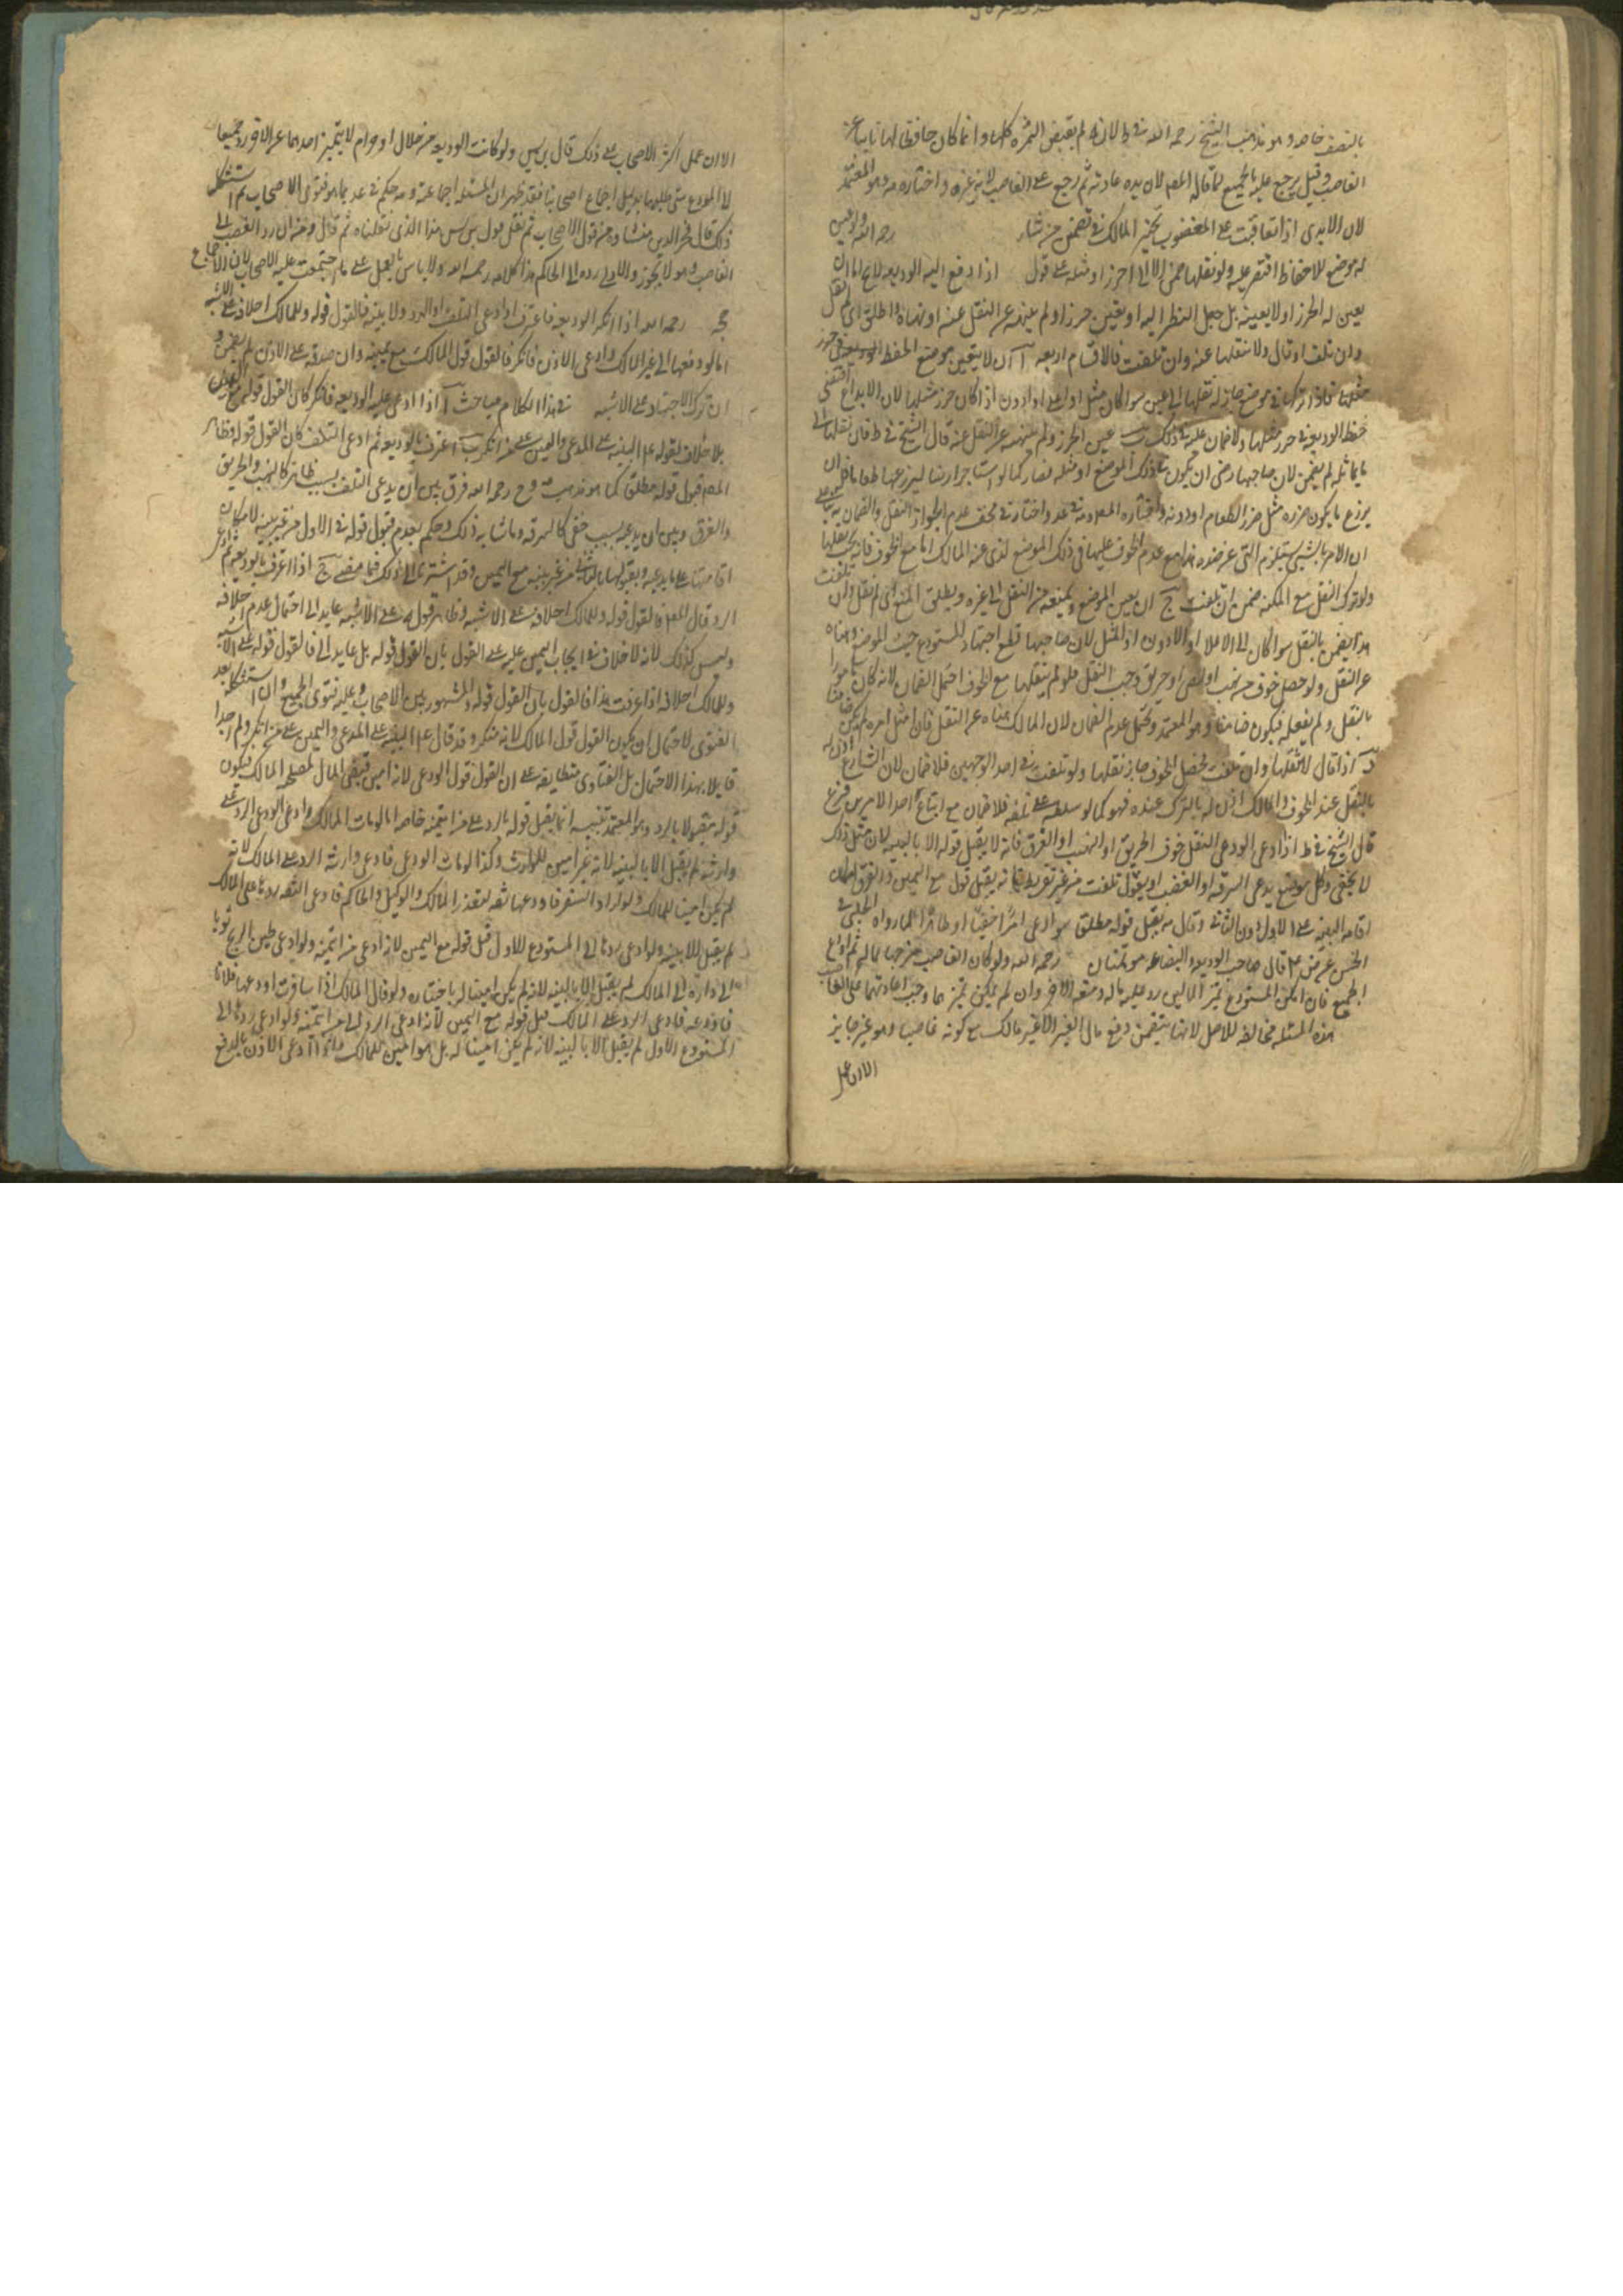 بالنصف خاصه وهو مذهب الشيخ رحمه الله في ط لانه لم يقبض الثمره كلها وانما كان حافظا لها نايبا عن
الغاصب وقيل يرجع عليه بالجميع لما قاله المص لان يده عادية ثم رجع على الغاصب لانه غره واختاره وهو المعتمد
لان الايدى اذا تعاقبت على المغصوب تخير المالك في تضمين من شاء رحمه الله وليس
له موضع للاحفاظ اقتصر عليه ولو نقلها ضمن الا الى احرز او مثله على قول اذا دفع اليه الوديعه فلا يخ اما ان
يعين له الحرز او لا يعينه بل يجعل النظر اليه او يعين حرزا ولم ينهه عن النقل عنه او نهاه واطلق اى لم يقل
وان تلفت او قال ولا تنقلها عنه وان تلفت فالاقسام اربعه آ ان لا يتعين موضع الحفظ في حرز
مثلها فلو تركها في موضع جاز له نقلها الى غيره سوا كان مثل اولا على او ادون اذا كان حرز مثلها لان الايداع اقتضى
حفظ الوديعه في حرز مثلها ولا ضمان عليه في ذلك ب عين الحرز ولم ينهه عن النقل عنه قال الشيخ في ط فان نقلها الى
ما يماثله لم يضمن لان صاحبها رضى ان يكون في ذلك الموضع او مثله فصار كما لو استاجر ارضا ليزرعها طعاما فله ان
يزرع ما يكون ضرره مثل ضرر الطعام او دونه واختاره المص وته في عد واختار في مختلف عدم الجواز النقل والضمان به بناء على
ان الامر بالشى يستلزم النهى عن ضده هذا مع عدم الخوف عليها في ذلك الموضع الذى عينه المالك اما مع الخوف فانه يجب نقلها
ولو ترك النقل مع المكنه ضمن ان تلفت ج ان يعين الموضع ويمنعه من النقل الى غيره ويطلق المنع اى لم يقل وان تلفت
هنا يضمن بالنقل سوا كان الى الاعلا او الادون او المثل لان صاحبها قطع اجتهاد المستودع حيث عين الموضع ونهاه
عن النقل ولو حصل خوف من نهب او لص او حريق وجب النقل فلو لم ينقلها مع الخوف احتمل الضمان لانه كان مامورا
بالنقل ولم يفعله فيكون ضامنا وهو المعتمد ويحتمل عدم الضمان لان المالك نهاه عن النقل فاذا امتثل امره لم يكن ضامنا
د اذا قال لا تنقلها وان تلفت فحصل الخوف جاز نقلها ولو تلفت في احد الوجهين فلا ضمان لان الشارع اذن له
بالنقل عند الخوف والمالك اذن له بالترك عنده فهو كما لو سلطه على تلفه فلا ضمان مع اتباع احد الامرين فرع
قال الشيخ في ط اذا ادعى المودعى النقل خوف الحريق او النهب او الغرق فانه لا يقبل قوله الا بالبينه لان مثل ذلك
لا يخفى وكل موضع يدعى السرقه او الغصب او يقول تلفت من غير تفريط فانه يقبل قوله مع اليمين والفرق امكان
اقامه البينه على الاول دون الثانى وقال به يقبل قوله مطلقا سوا ادعى امرا خفيا او ظاهرا لما رواه الحلبى في
الحسن عن ص ع قال صاحب الوديعه والبضاعه مؤتمنان رحمه الله ولو كان الغاصب مزجها بماله ثم اودع
الجميع فان امكن المستودع تميز المالين رد عليه ماله ومنعه الاخر وان لم يمكن تميزهما وجب اعادتهما على الغاصب
هذه المسئله مخالفه للاصل لانها يتضمن دفع مال الغير الى غير مالكه مع كونه غاصبا وهو غير جايز
الا ان عمل
الا ان عمل اكثر الاصحاب على ذلك قال بن ادريس ولو كانت الوديعه من حلال او حرام لا يتميز احدهما عن الاخر رد جميعا
لا المودع متى طلبها بدليل اجماع اصحابنا فقد ظهر ان المسئله اجماعية وته حكم في عد بما هو فتوى الاصحاب ثم استشكل
ذلك قال فخر الدين منشاه من قول الاصحاب ثم نقل قول بن ادريس هذا الذى نقلناه ثم قال ومن ان رد الغصب الى
الغاصب وهو لا يجوز والاولى رده الى الحاكم هذا كلامه رحمه الله ولا باس بالعمل على ما اجتمعت عليه الاصحاب لان الاجماع
حجه رحمه الله اذا انكر الوديعه فاعترف او ادعى التلف او الرد ولا بينه فالقول قوله وللمالك احلافه على الاشبه
اما لو دفعها الى غير المالك وادعى الاذن فانكر فالقول قول المالك مع يمينه وان صدقه على الاذن لم يضمن و
ان ترك الاشهاد على الاشبه في هذا الكلام مباحث آ اذا ادعى عليه الوديعه فانكر كان القول قوله مع اليمين
بلا خلاف لقوله ع البينه على المدعى واليمين على من انكر ب اعترف بالوديعه ثم ادعى التلف كان القول قوله وظاهر
المص قبول قوله مطلقا كما هو مذهب ته وح رحمه الله فرق بين ان يدعى التلف بسبب ظاهر كالنهب والحريق
والغرق وبين ان يدعيه بسبب خفى كالسرقه وما شابه ذلك وحكم بعدم قبول قوله في الاول من غير بينه لامكان
اقامتها على ما يدعيه ويقبلها بالثانى من غير بينه مع اليمين وقد اشرنا الى ذلك فيما مضى ج اذا اعترف بالوديعه ثم ادعى
الرد قال المص فالقول قوله وللمالك احلافه على الاشبه وظاهر قوله على الاشبه عايد الى احتمال عدم احلافه
وليس كذلك لانه لا خلاف في ايجاب اليمين عليه على القول بان القول قوله بل عايد الى فالقول قوله على الاشبه
وللمالك احلافه اذا عرفت هذا فالقول بان القول قوله والمشهور بين الاصحاب وعليه فتوى الجميع وان استشكل بعد
الفتوى لاحتمال ان يكون القول قول المالك لانه منكر وقد قال ع البينه على المدعى واليمين على من انكر ولم اجد
قايلا بهذا الاحتمال بل الفتاوى متطابقة على ان القول قول الودعى لانه امين قبض المال لمصلحه المالك فيكون
قوله مقبولا بالرد وهو المعتمد تنبيه انما يقبل قوله بالرد على من ائتمنه خاصه اما لو مات المالك وادعى الودعى الرد على
وارثه لم يقبل الا بالبينه لانه غير امين للوارث وكذا لو مات الودعى فادعى وارثه الرد على المالك لانه
لم يكن امينا للمالك ولو اراد السفر فاودعها ثقه لتعذر المالك والوكيل والحاكم فادعى الثقه ردها على المالك
لم يقبل الا ببينه ولو ادعى ردها الى المستودع الاول قبل قوله مع اليمين لانه ادعى من ائتمنه ولو ادعى طير الريح ثوبا
الى داره الى المالك لم يقبل الا بالبينه لانه لم يكن امينا له باختياره ولو قال المالك اذا سافرت اودعها فلانا
فاودعه فادعى الرد على المالك قبل قوله مع اليمين لانه ادعى الرد الى من ائتمنه ولو ادعى ردها الى
المستودع الاول لم يقبل الا بالبينه لانه لم يكن امينا له بل هو امين للمالك اذا ادعى الاذن بالدفع